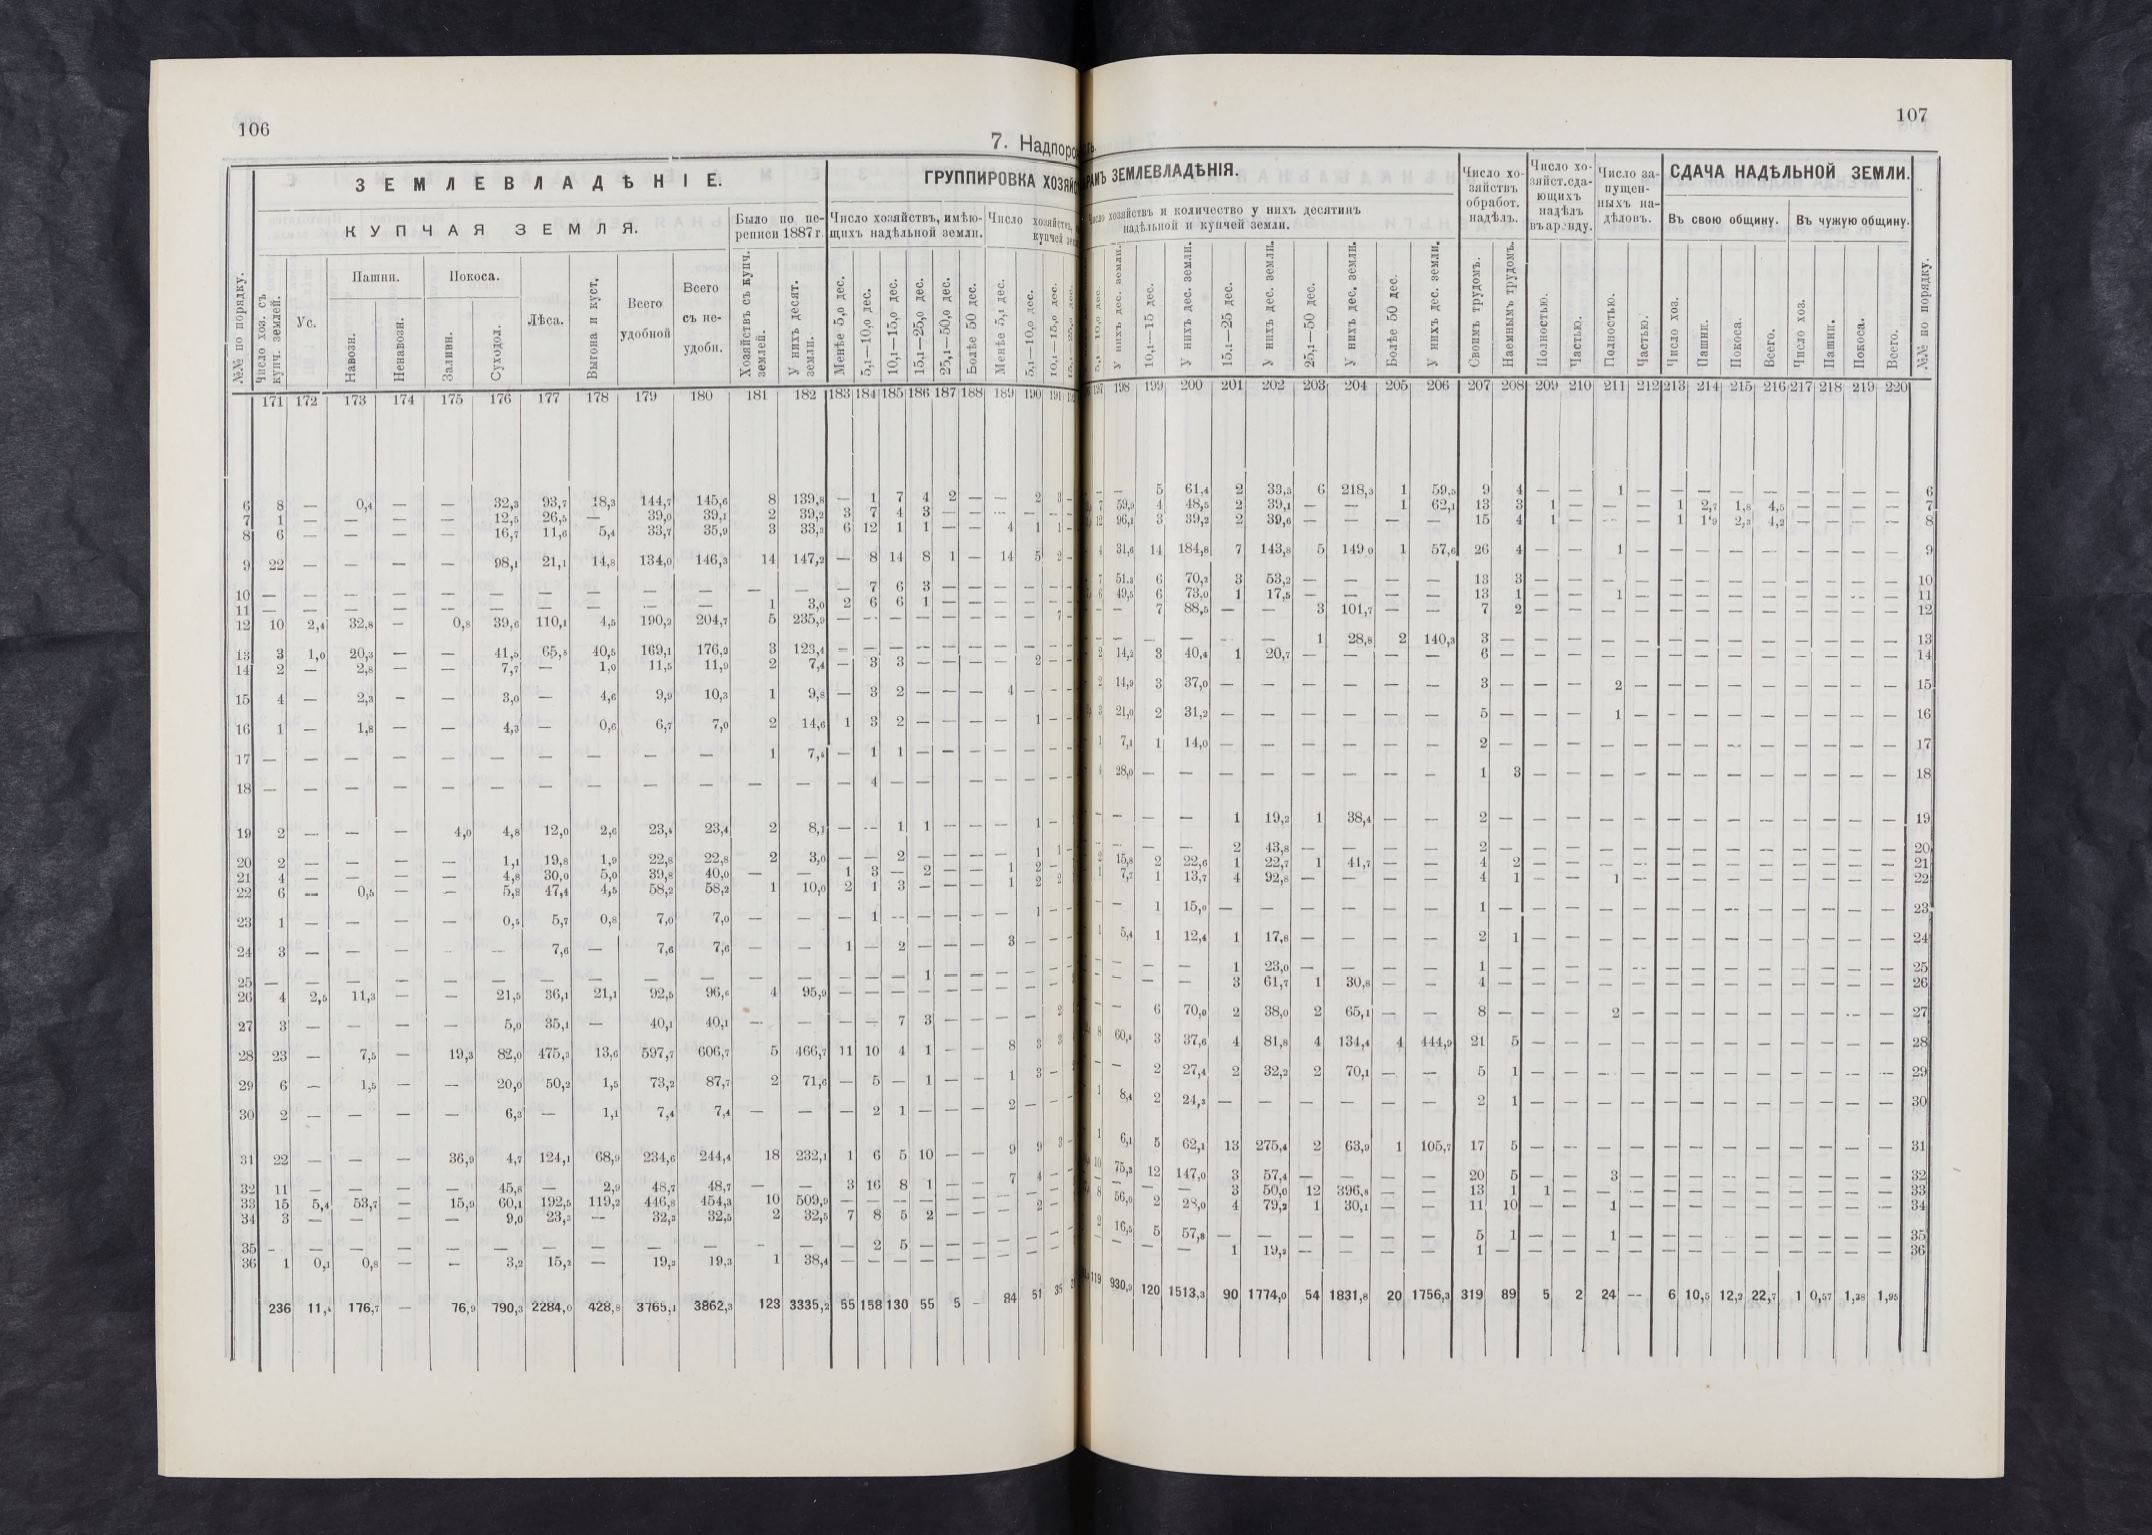 106
7. Надпоро
З Е М Л Е В Л А Д Ѣ Н І Е.
ГРУППИРОВКА ХОЗЯЙС
К У П Ч А Я З Е М Л Я.
Было по пе-
реписи 1887 г.
Число хозяйствъ, имѣю-
щихъ надѣльной земли.
Число хозяйствъ,
купчей
№№ по порядку.
Число хоз. съ
купч. землей.
Ус.
Пашни.
Навозн.
Ненавозн.
Покоса.
Заливн.
Суходол.
Лѣса.
Выгона и куст.
Всего
удобной
Всего
съ не-
удобн.
Хозяйствъ съ купч.
землей.
У нихъ десят.
земли.
Менѣе 5,0 дес.
5,1—10,0 дес.
10,1—15,0 дес.
15,1—25,0 дес.
25,1—50,0 дес.
Болѣе 50 дес.
Менѣе 5,1 дес.
5,1—10,0 дес.
10,1—15,0 дес.
171 172 173 174 175 176 177 178 179 180 181 182 183 184 185 186 187 188 189 190 191
6 8 — 0,4 — — 32,3 93,7 18,3 144,7 145,6 8 139,8 — 1 7 4 2 — — 2 3
7 1 — — — — 12,5 26,5 — 39,0 39,1 2 39,2 3 7 4 3 — — — — —
8 6 — — — — 16,7 11,6 5,4 33,7 35,9 3 33,3 6 12 1 1 — — 4 1 1
9 22 — — — — 98,1 21,1 14,8 134,0 146,3 14 147,2 — 8 14 8 1 — 14 5 2
10 — — — — — — — — — — — — — 7 6 3 — — — — —
11 — — — — — — — — — — 1 3,0 2 6 6 1 — — — — —
12 10 2,4 32,8 — 0,8 39,6 110,1 4,5 190,2 204,7 5 235,9 — — — — — — — — 7
13 3 1,0 20,3 — — 41,5 65,8 40,5 169,1 176,2 3 123,4 — — — — — — — — —
14 2 — 2,8 — — 7,7 — 1,0 11,5 11,9 2 7,4 — 3 3 — — — — 2 —
15 4 — 2,3 — — 3,0 — 4,6 9,9 10,3 1 9,8 — 3 2 — — — 4 — —
16 1 — 1,8 — — 4,3 — 0,6 6,7 7,0 2 14,6 1 3 2 — — — — 1 —
17 — — — — — — — — — — 1 7,4 — 1 1 — — — — — —
18 — — — — — — — — — — — — — 4 — — — — — — —
19 2 — — — 4,0 4,8 12,0 2,6 23,4 23,4 2 8,1 — — 1 1 — — — 1 —
20 2 — — — — 1,1 19,8 1,9 22,8 22,8 2 3,0 — — 2 — — — — 1 1
21 4 — — — — 4,8 30,0 5,0 39,8 40,0 — — 1 3 — 2 — — 1 2 —
22 6 — 0,5 — — 5,8 47,4 4,5 58,2 58,2 1 10,0 2 1 3 — — — 1 2 2
23 1 — — — — 0,5 5,7 0,8 7,0 7,0 — — — 1 — — — — — 1 —
24 3 — — — — — 7,6 — 7,6 7,6 — — 1 — 2 — — — 3 — —
25 — — — — — — — — — — — — — — — 1 — — — — —
26 4 2,5 11,3 — — 21,5 36,1 21,1 92,5 96,6 4 95,9 — — — — — — — — —
27 3 — — — — 5,0 35,1 — 40,1 40,1 — — — — 7 3 — — — — 2
28 23 — 7,5 — 19,3 82,0 475,3 13,6 597,7 606,7 5 466,7 11 10 4 1 — — 8 3 3
29 6 — 1,5 — — 20,0 50,2 1,5 73,2 87,7 2 71,6 — 5 — 1 — — 1 3 —
30 2 — — — — 6,3 — 1,1 7,4 7,4 — — — 2 1 — — — 2 — —
31 22 — — — 36,9 4,7 124,1 68,9 234,6 244,4 18 232,1 1 6 5 10 — — 9 9 3
32 11 — — — — 45,8 — 2,9 48,7 48,7 — — 3 16 8 1 — — 7 4 —
33 15 5,4 53,7 — 15,9 60,1 192,5 119,2 446,8 454,3 10 509,9 — — — — — — — — —
34 3 — — — — 9,0 23,3 — 32,3 32,5 2 32,5 7 8 5 2 — — — 2 —
35 — — — — — — — — — — — — — 2 5 — — — — — —
36 1 0,1 0,8 — — 3,2 15,2 — 19,3 19,3 1 38,4 — — — — — — — — —
236 11,4 176,7 — 76,9 790,3 2284,0 428,8 3765,1 3862,3 123 3335,2 55 158 130 55 5 — 84 51 35
107
РАМЪ ЗЕМЛЕВЛАДѢНІЯ.
хозяйствъ и количество у нихъ десятинъ
надѣльной и купчей земли.
Число хо-
зяйствъ
обработ.
надѣлъ.
Число хо-
зяйст.сда-
ющихъ
надѣлъ
въ аренду.
Число за-
пущен-
ныхъ на-
дѣловъ.
СДАЧА НАДѢЛЬНОЙ ЗЕМЛИ.
Въ свою общину.
Въ чужую общину.
5,1—10,0 дес.
У нихъ дес. земли.
10,1—15 дес.
У нихъ дес. земли.
15,1—25 дес.
У нихъ дес. земли.
25,1—50 дес.
У нихъ дес. земли.
Болѣе 50 дес.
У нихъ дес. земли.
Своимъ трудомъ.
Наемнымъ трудомъ.
Полностью.
Частью.
Полностью.
Частью.
Число хоз.
Пашни.
Покоса.
Всего.
Число хоз.
Пашни.
Покоса.
Всего.
№№ по порядку.
197 198 199 200 201 202 203 204 205 206 207 208 209 210 211 212 213 214 215 216 217 218 219 220
— — 5 61,4 2 33,5 6 218,3 1 59,5 9 4 — — 1 — — — — — — — — — 6
7 59,9 4 48,5 2 39,1 — — 1 62,1 13 3 1 — — — 1 2,7 1,8 4,5 — — — — 7
12 96,1 3 39,2 2 39,6 — — — — 15 4 1 — — — 1 1,9 2,3 4,2 — — — — 8
4 31,6 14 184,8 7 143,8 5 149,0 1 57,6 26 4 — — 1 — — — — — — — — — 9
7 51,3 6 70,2 3 53,2 — — — — 13 3 — — — — — — — — — — — — 10
6 49,5 6 73,0 1 17,5 — — — — 13 1 — — 1 — — — — — — — — — 11
— — 7 88,5 — — 3 101,7 — — 7 2 — — — — — — — — — — — — 12
— — — — — — 1 28,8 2 140,3 3 — — — — — — — — — — — — — 13
2 14,2 3 40,4 1 20,7 — — — — 6 — — — — — — — — — — — — — 14
2 14,9 3 37,0 — — — — — — 3 — — — 2 — — — — — — — — — 15
3 21,0 2 31,2 — — — — — — 5 — — — 1 — — — — — — — — — 16
1 7,1 1 14,0 — — — — — — 2 — — — — — — — — — — — — — 17
4 28,0 — — — — — — — — 1 3 — — — — — — — — — — — — 18
— — — — 1 19,2 1 38,4 — — 2 — — — — — — — — — — — — — 19
— — — — 2 43,8 — — — — 2 — — — — — — — — — — — — — 20
2 15,8 2 22,6 1 22,7 1 41,7 — — 4 2 — — — — — — — — — — — — 21
1 7,7 1 13,7 4 92,8 — — — — 4 1 — — 1 — — — — — — — — — 22
— — 1 15,0 — — — — — — 1 — — — — — — — — — — — — — 23
1 5,4 1 12,4 1 17,8 — — — — 2 1 — — — — — — — — — — — — 24
— — — — 1 23,0 — — — — 1 — — — — — — — — — — — — — 25
— — — — 3 61,7 1 30,8 — — 4 — — — — — — — — — — — — — 26
— — 6 70,0 2 38,0 2 65,1 — — 8 — — — 2 — — — — — — — — — 27
8 60,4 3 37,6 4 81,8 4 134,4 4 444,9 21 5 — — — — — — — — — — — — 28
— — 2 27,4 2 32,2 2 70,1 — — 5 1 — — — — — — — — — — — — 29
1 8,4 2 24,3 — — — — — — 2 1 — — — — — — — — — — — — 30
1 6,1 5 62,1 13 275,4 2 63,9 1 105,7 17 5 — — — — — — — — — — — — 31
10 75,3 12 147,0 3 57,4 — — — — 20 5 — — 3 — — — — — — — — — 32
— — — — 3 50,0 12 396,8 — — 13 1 1 — — — — — — — — — — — 33
8 56,0 2 28,0 4 79,2 1 30,1 — — 11 10 — — 1 — — — — — — — — — 34
2 16,5 5 57,8 — — — — — — 5 1 — — 1 — — — — — — — — — 35
— — — — 1 19,3 — — — — 1 — — — — — — — — — — — — — 36
119 930,9 120 1513,3 90 1774,0 54 1831,8 20 1756,3 319 89 5 2 24 — 6 10,5 12,2 22,7 1 0,57 1,38 1,95